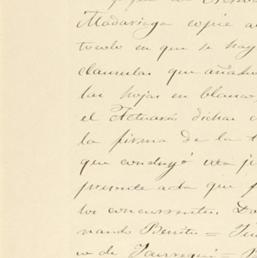 Madariaga copie
tocolo en que se hay
clausulas que añad
las hojas en blanco
el Actuario dichas
la firma de la t
que concluyó
presente acta que f
los concurrentes. Do
nando Benitu =
o de Jauregui =